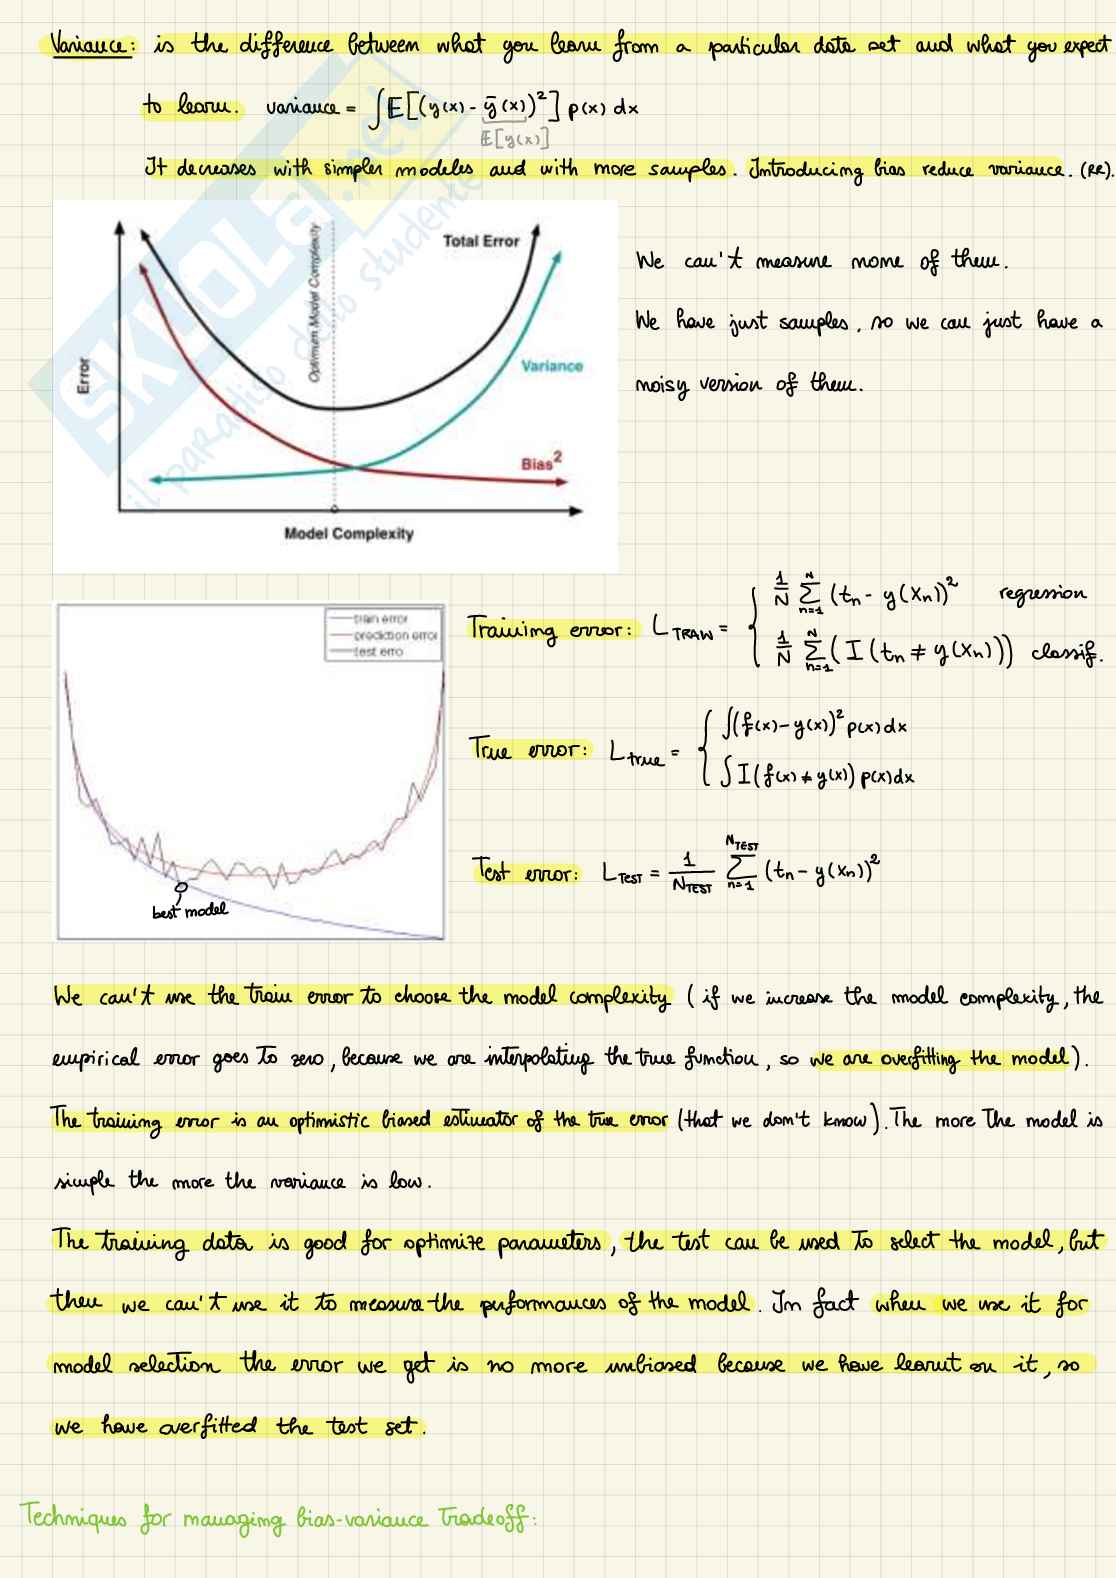 Variance: is the difference between what you learn from a particular data set and what you expect
to learn. variance = ∫ E[(y(x) - ȳ(x))²] p(x) dx
E[y(x)]
It decreases with simpler modeles and with more samples. Introducing bias reduce variance. (RR).
Total Error
Optimum Model Complexity
Variance
Error
Bias²
Model Complexity
We can't measure none of them.
We have just samples, so we can just have a
noisy version of them.
train error
prediction error
test erro
best model
Training error: L_TRAIN = { 1/N Σ_{n=1}^{N} (tn - y(xn))² regression
1/N Σ_{n=1}^{N} (I(tn ≠ y(xn))) classif.
True error: L_true = { ∫(f(x) - y(x))² p(x) dx
∫ I(f(x) ≠ y(x)) p(x) dx
Test error: L_TEST = 1/N_TEST Σ_{n=1}^{N_TEST} (tn - y(xn))²
We can't use the train error to choose the model complexity (if we increase the model complexity, the
empirical error goes to zero, because we are interpolating the true function, so we are overfitting the model).
The training error is an optimistic biased estimator of the true error (that we don't know). The more the model is
simple the more the variance is low.
The training data is good for optimize parameters, the test can be used to select the model, but
then we can't use it to measure the performances of the model. In fact when we use it for
model selection the error we get is no more unbiased because we have learnt on it, so
we have overfitted the test set.
Techniques for managing bias-variance tradeoff:
SKUOLA.net
il paradiso dello studente